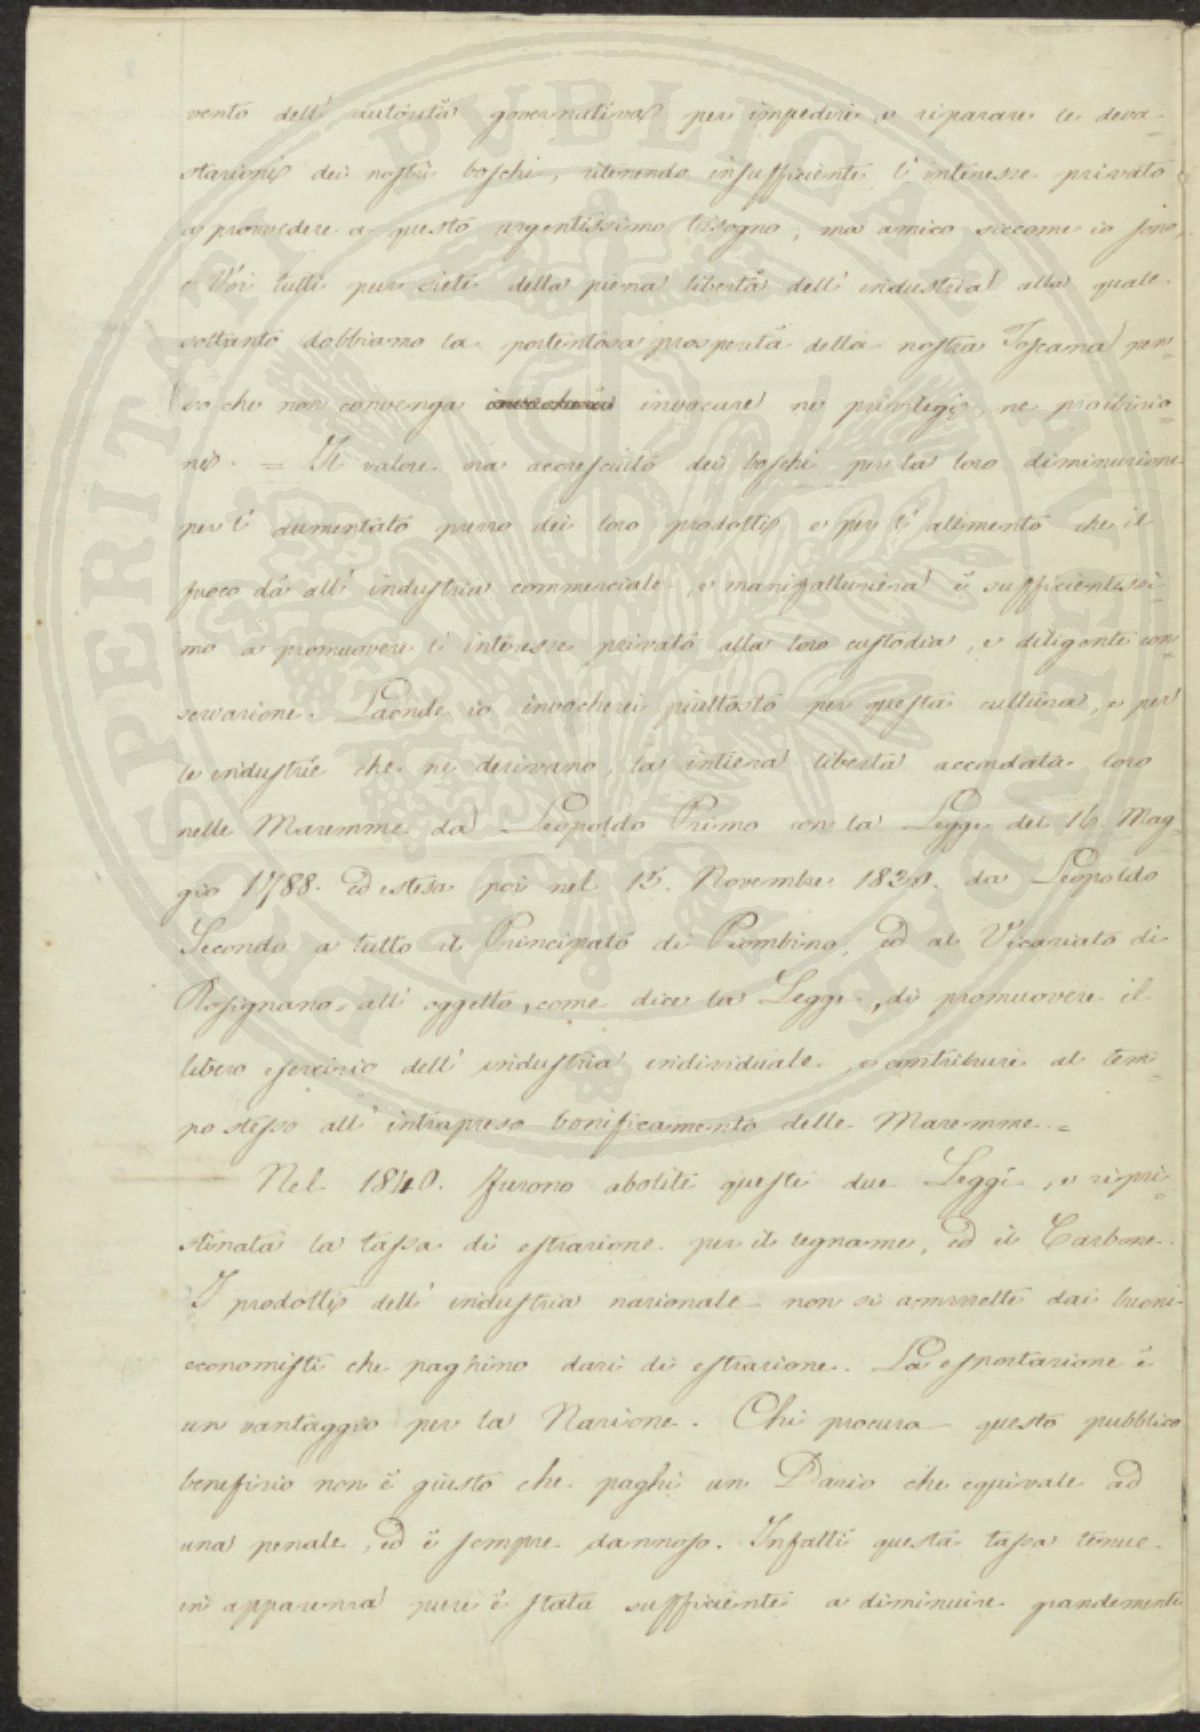 vento dell' autorità governativa per impedire e riparare le deva-
stazioni dei nostri boschi, ritenendo insufficiente l' interesse privato
a provvedere a questo urgentissimo bisogno; ma amico siccome io sono,
e Voi tutti pur siete della piena libertà dell' industria alla quale
soltanto dobbiamo la portentosa prosperità della nostra Toscana pen=
so che non convenga invocare ne privilegi, ne proibizio=
ni. = Il valore ora accresciuto dei boschi per la loro diminuzione
per l' aumentato prezzo dei loro prodotti e per l' alimento che il
fuoco dà all' industria commerciale e manifatturiera è sufficientissi=
mo a promuovere l' interesse privato alla loro custodia, e diligente con=
servazione. Laonde io invocherei piuttosto per questa cultura, e per
le industrie che ne derivano, la intiera libertà accordata loro
nelle Maremme da Leopoldo Primo con la Legge del 16. Mag=
gio 1788. ed estesa poi nel 15. Novembre 1830. da Leopoldo
Secondo a tutto il Principato di Piombino, ed al Vicariato di
Rosignano all' oggetto, come dice la Legge, di promuovere il
libero esercizio dell' industria individuale, e contribuire al tem=
po stesso all' intrapreso bonificamento delle Maremme. =
Nel 1840. furono aboliti queste due Leggi, e ripri=
stinata la tassa di estrazione per il legname, ed il Carbone.
I prodotti dell' industria nazionale non si ammette dai buoni
economisti che paghino dazi di estrazione. La esportazione è
un vantaggio per la Nazione. Chi procura questo pubblico
benefizio non è giusto che paghi un Dazio che equivale ad
una penale, ed è sempre dannoso. Infatti questa tassa tenue
in apparenza pure è stata sufficiente a diminuire grandemente
PROSPERITATI PUBLICAE AUGENDAE